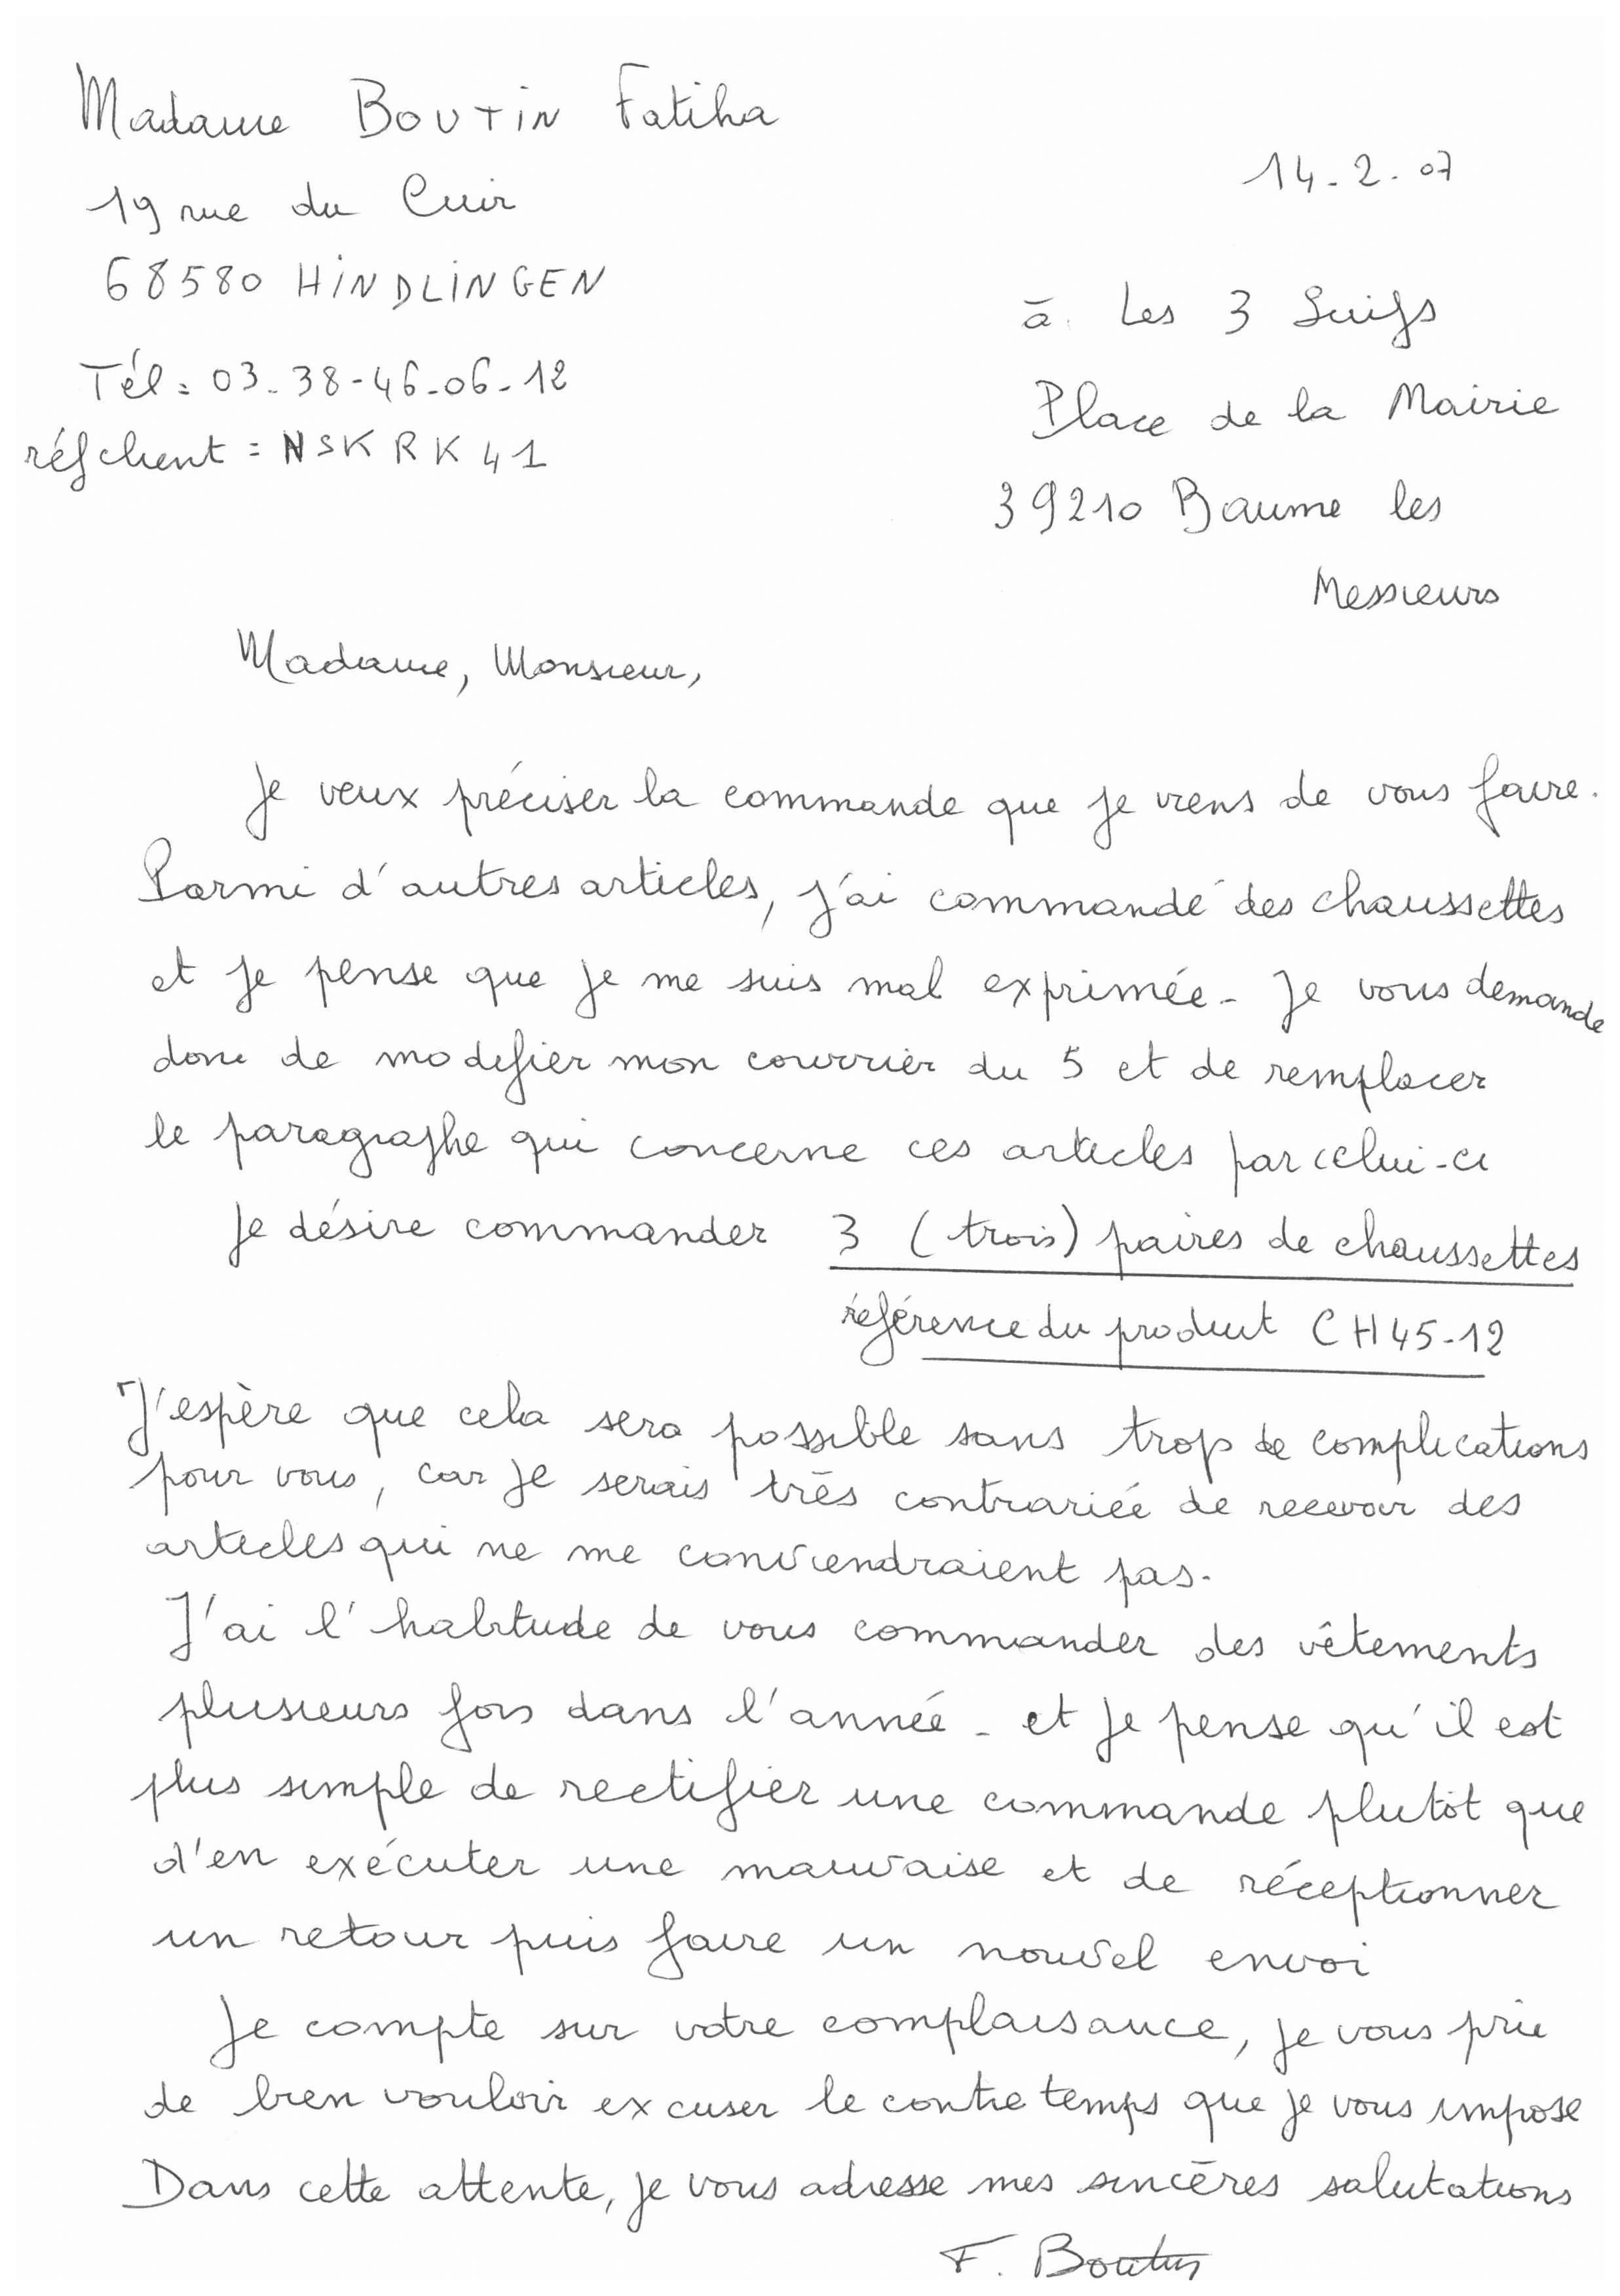 Madame BOUTIN Fatiha
14-2-07
19 rue du Cuir
68580 HINDLINGEN
à Les 3 Suifs
Tél : 03-38-46-06-12
Place de la Mairie
réf client : NSKRK41
39210 Baume les
Messieurs
Madame, Monsieur,
Je veux préciser la commande que je viens de vous faire.
Parmi d'autres articles, j'ai commandé des chaussettes
et je pense que je me suis mal exprimée. Je vous demande
donc de modifier mon courrier du 5 et de remplacer
le paragraphe qui concerne ces articles par celui-ci
Je désire commander 3 (trois) paires de chaussettes
référence du produit CH45-12
J'espère que cela sera possible sans trop de complications
pour vous, car je serais très contrariée de recevoir des
articles qui ne me conviendraient pas.
J'ai l'habitude de vous commander des vêtements
plusieurs fois dans l'année - et je pense qu'il est
plus simple de rectifier une commande plutôt que
d'en exécuter une mauvaise et de réceptionner
un retour puis faire un nouvel envoi
Je compte sur votre complaisance, je vous prie
de bien vouloir excuser le contre temps que je vous impose
Dans cette attente, je vous adresse mes sincères salutations
F. Boutin